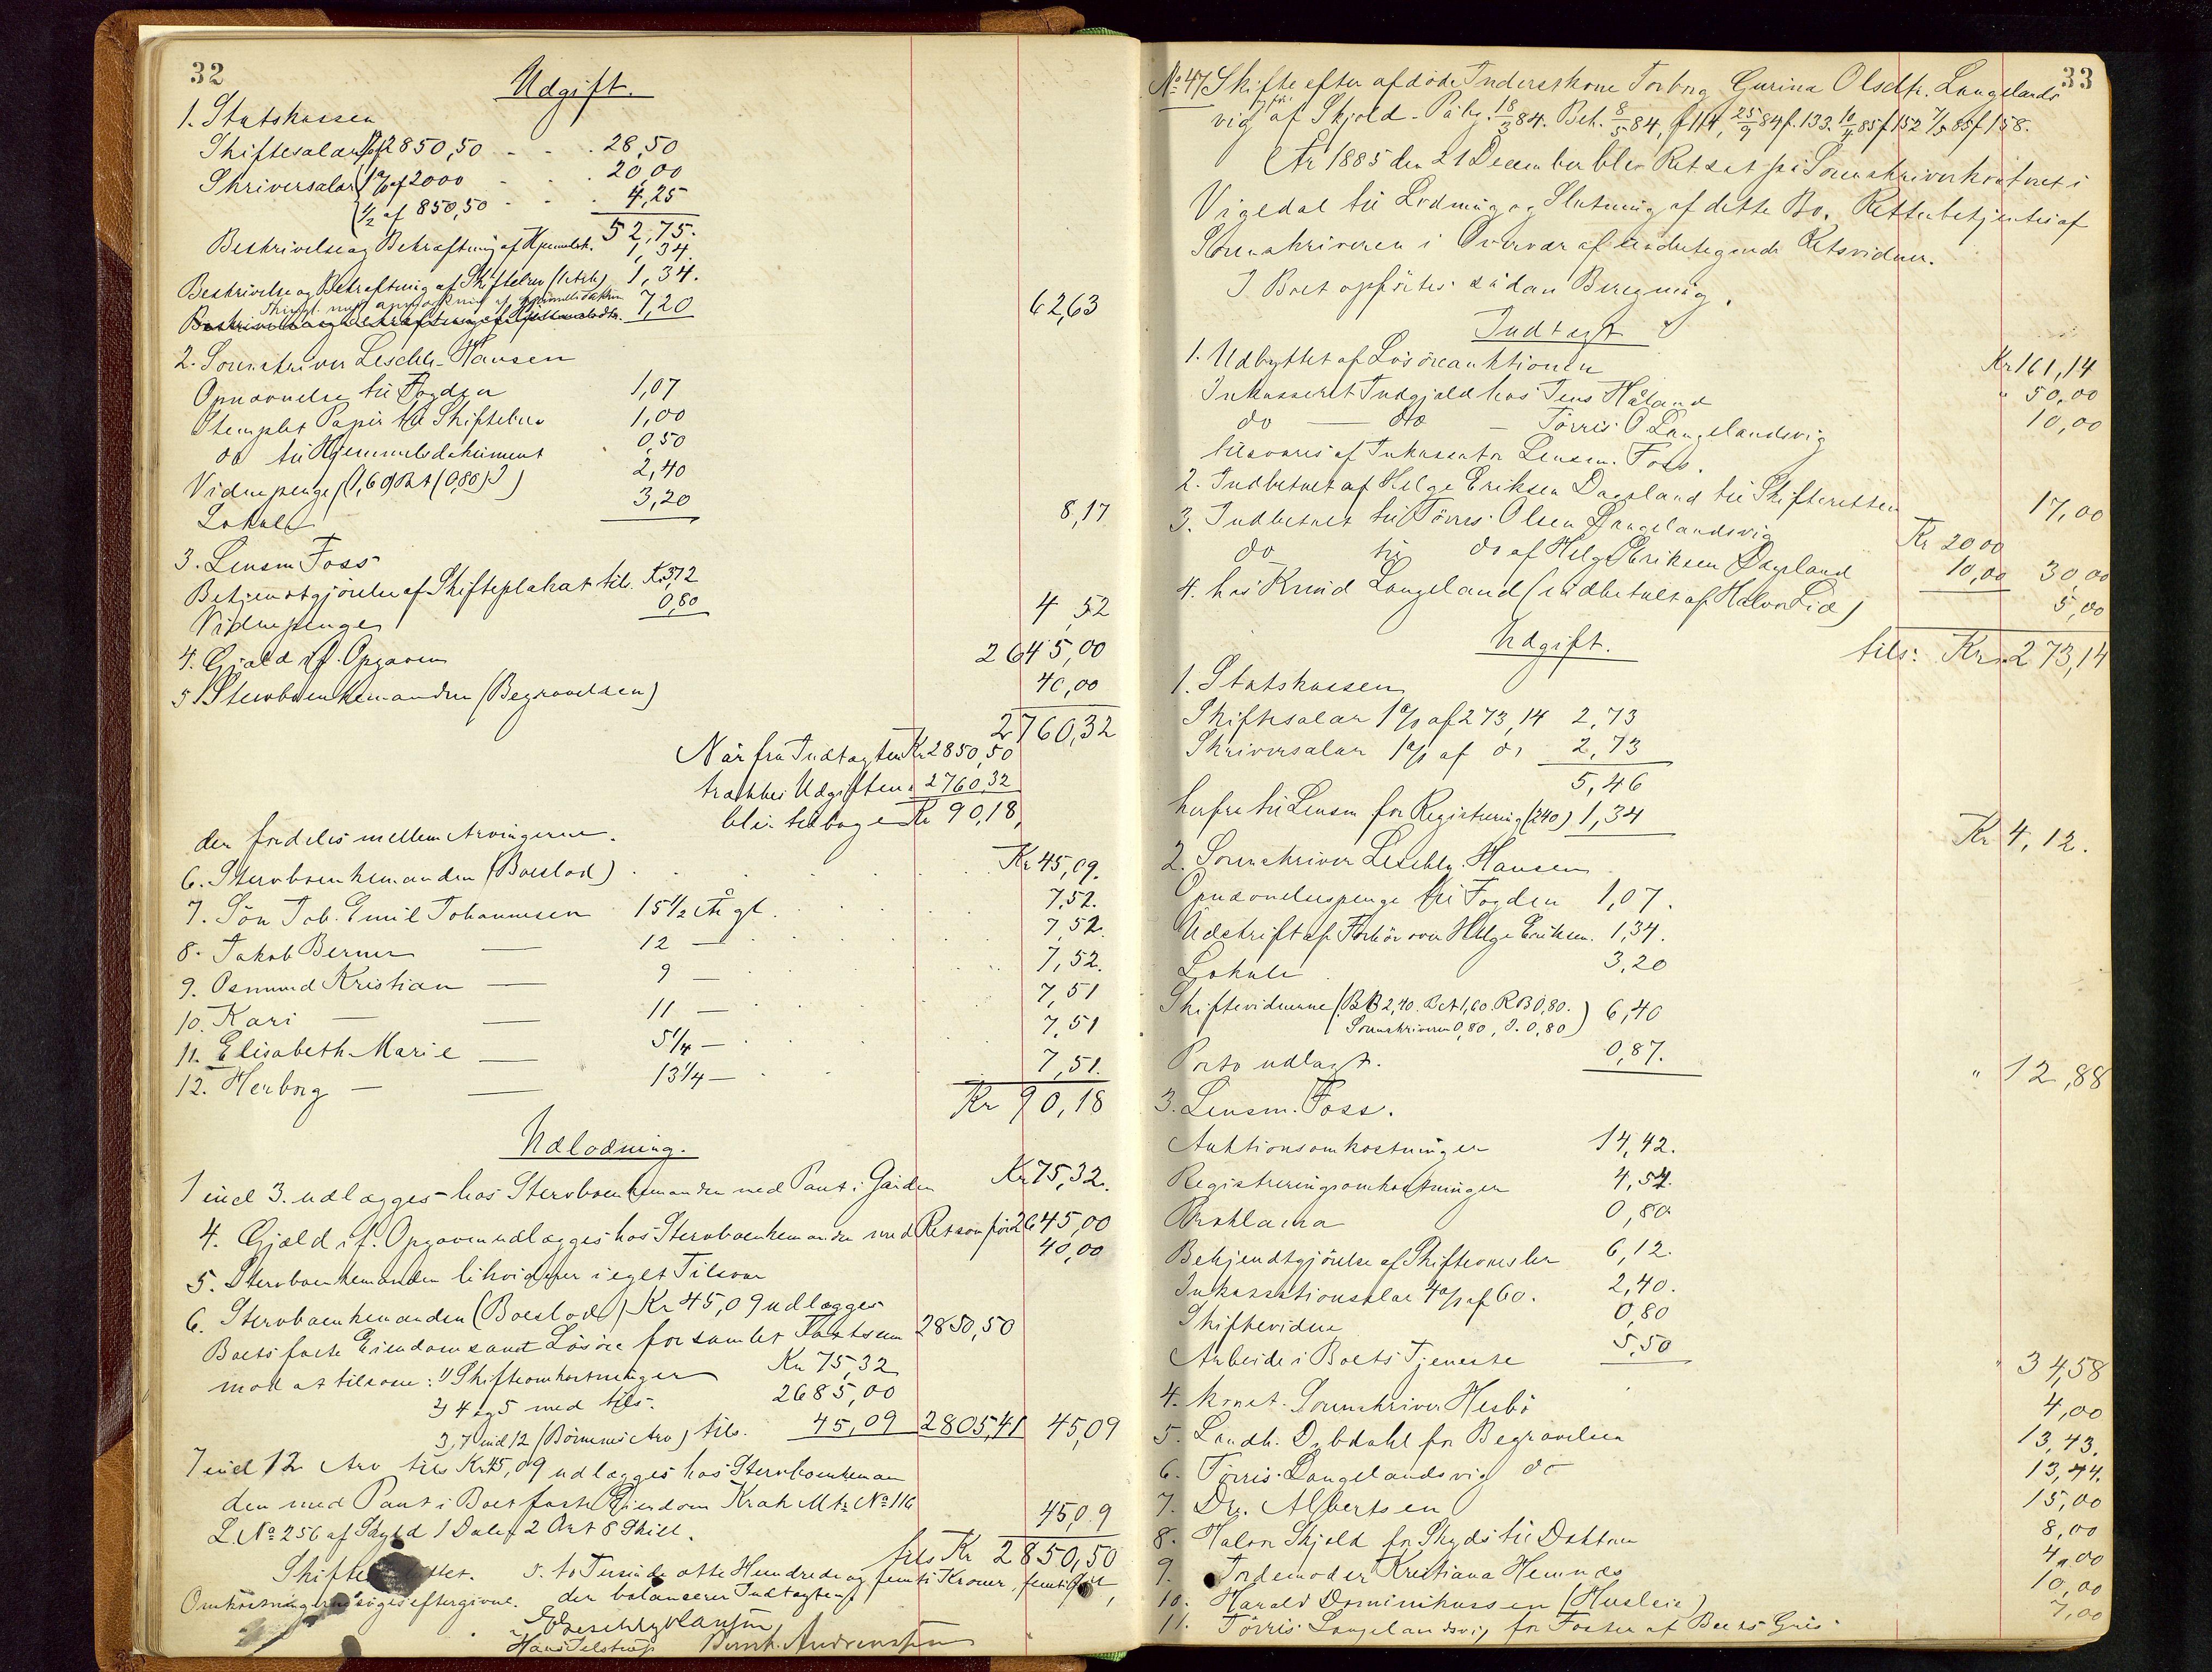 32
Udgift.
1. Statskassen
Skiftesalar 1% af 2850,50 - - . 28,50
Skriversalar (1% af 2000 - - . 20,00
(½ af 850,50 - - . 4,25
52,75.
Beskrivelse og Bekræftning af Hjemmelsd. 1,34.
Beskrivelse og Bekræftning af Skiftebrev 1,34.
7,20
62,63
2. Sorenskriver Leschly-Hansen
Opnævnelse til Fogden 1,07
Stemplet Papir til Skiftebrev 1,00
do til Hjemmelsdokument 0,50
Vidnepenge 2,40
Lokale 3,20
8,17
3. Lensm Foss
Bekjendtgjörelse af Skifteplakat tils. Kr 3,72
Vidnepenge 0,80
4,52
4. Gjæld if. Opgaven 2645,00
5. Stervboenkemanden (Begravelsen) 40,00
2760,32
Når fra Indtægten Kr 2850,50
trækkes Udgiften " 2760,32
blir tilbage Kr 90,18,
der fordeles mellem Arvingerne.
6. Stervboenkemanden (Boeslod) . . . Kr 45,09.
7. Sön Joh. Emil Johannesen 15½ År gl. . . 7,52.
8. Jakob Berner — 12 — . . 7,52.
9. Osmund Kristian — 9 — . . 7,52.
10. Kari — — 11 — . . 7,51
11. Elisabeth Marie — 5¼ — . . 7,51
12. Herborg — — 13¼ — . . 7,51.
Kr 90,18
Udlodning.
1 incl 3. udlægges hos Stervboenkemanden med Pant i Gården Kr 75,32.
4. Gjæld if. Opgaven udlægges hos Stervboenkemanden med Ret som för 2645,00
5. Stervboenkemanden likviderer i eget Tilsvar 40,00
6. Stervboenkemanden (Boeslod) Kr 45,09 udlægges
Boets faste Eiendom samt Lösöre for samlet Taxtsum 2850,50
mod at tilsvare: 1) Skifteomkostninger Kr 75,32
2) 4 og 5 med tils. 2685,00
3, 7 incl 12 (Börnenes Arv) tils. 45,09 2805,41 45,09
7 incl 12 Arv tils Kr 45,09 udlægges hos Stervboenkeman
den med Pant i Boets faste Eiendom Krak Mtr. No 116
L. No 256 af Skyld 1 Daler 2 Ort 8 Skill. 45,09
tils Kr 2850,50
Skifte s. to Tusinde otte Hundrede og femti Kroner, femti Öre,
Omkostningerne söges eftergivne. der balancerer Indtægten.
Leschly Hansen
Hans Jelstrup Bernh. Andreassen
33
No 47 Skifte efter afdöde Inderstkone Torborg Gurina Olsdtr. Langelands
vig af Skjold - Påbg. 18/3 84. Beh. 8/5 84, f 114, 25/9 84 f. 133. 10/4 85 f 152 7/5 85 f 158.
År 1885 den 21 December blev Ret sat på Sorenskriverkontoret i
Vigedal til Lodning og Slutning af dette Bo. Retten betjentes af
Sorenskriveren i Overvær af undertegnede Retsvidner.
I Boet opförtes sådan Beregning.
Indtægt
1. Udbyttet af Lösöreauktionen Kr 161,14
Inkasseret Indgjæld hos Jens Håland " 50,00
do — dto — Törris O. Langelandsvig 10,00
tilsvares af Inkassator Lensm. Foss.
2. Indbetalt af Helge Eriksen Dagsland til Skifteretten 17,00
3. Indbetalt til Törres Olsen Langelandsvig Kr 20,00
do til do af Helge Eriksen Dagsland 10,00 30,00
4. hos Knud Langeland (indbetalt af Halvor Lie) 5,00
tils: Kr 273,14
Udgift.
1. Statskassen
Skiftesalar 1% af 273,14 2,73
Skriversalar 1% af do 2,73
5,46
herfra til Lensm for Registrering (240) 1,34
Kr 4,12.
2. Sorenskriver Leschly-Hansen
Opnævnelsespenge til Fogden 1,07.
Udskrift af Forhör over Helge Eriksen. 1,34.
Lokale 3,20
Skiftevidnerne (BB 2,40. BA 1,60. RB 0,80.
Sorenskriveren 0,80, J. 0,80) 6,40
Porto udlagt. 0,87.
" 12,88
3. Lensm. Foss.
Auktionsomkostninger 14,42.
Registreringsomkostninger 4,54.
Proklama 0,80
Bekjendtgjörelse af Skiftesamlr 6,12.
Inkassationssalar 4% af 60. 2,40.
Skiftevidne 0,80
Arbeide i Boets Tjeneste 5,50
" 34,58
4. konst. Sorenskriver Hesbö 4,00
5. Landh. Dybdahl for Begravelsen 13,43.
6. Törris Langelandsvig do 13,44.
7. Dr. Albertsen 15,00
8. Halvor Skjold for Skyds til Doktoren 8,00
9. Jordemoder Kristiana Hemnæs 4,00
10. Harald Dominikussen (Husleie) 10,00
11. Törris Langelandsvig for Foster af Boets Gris 7,00